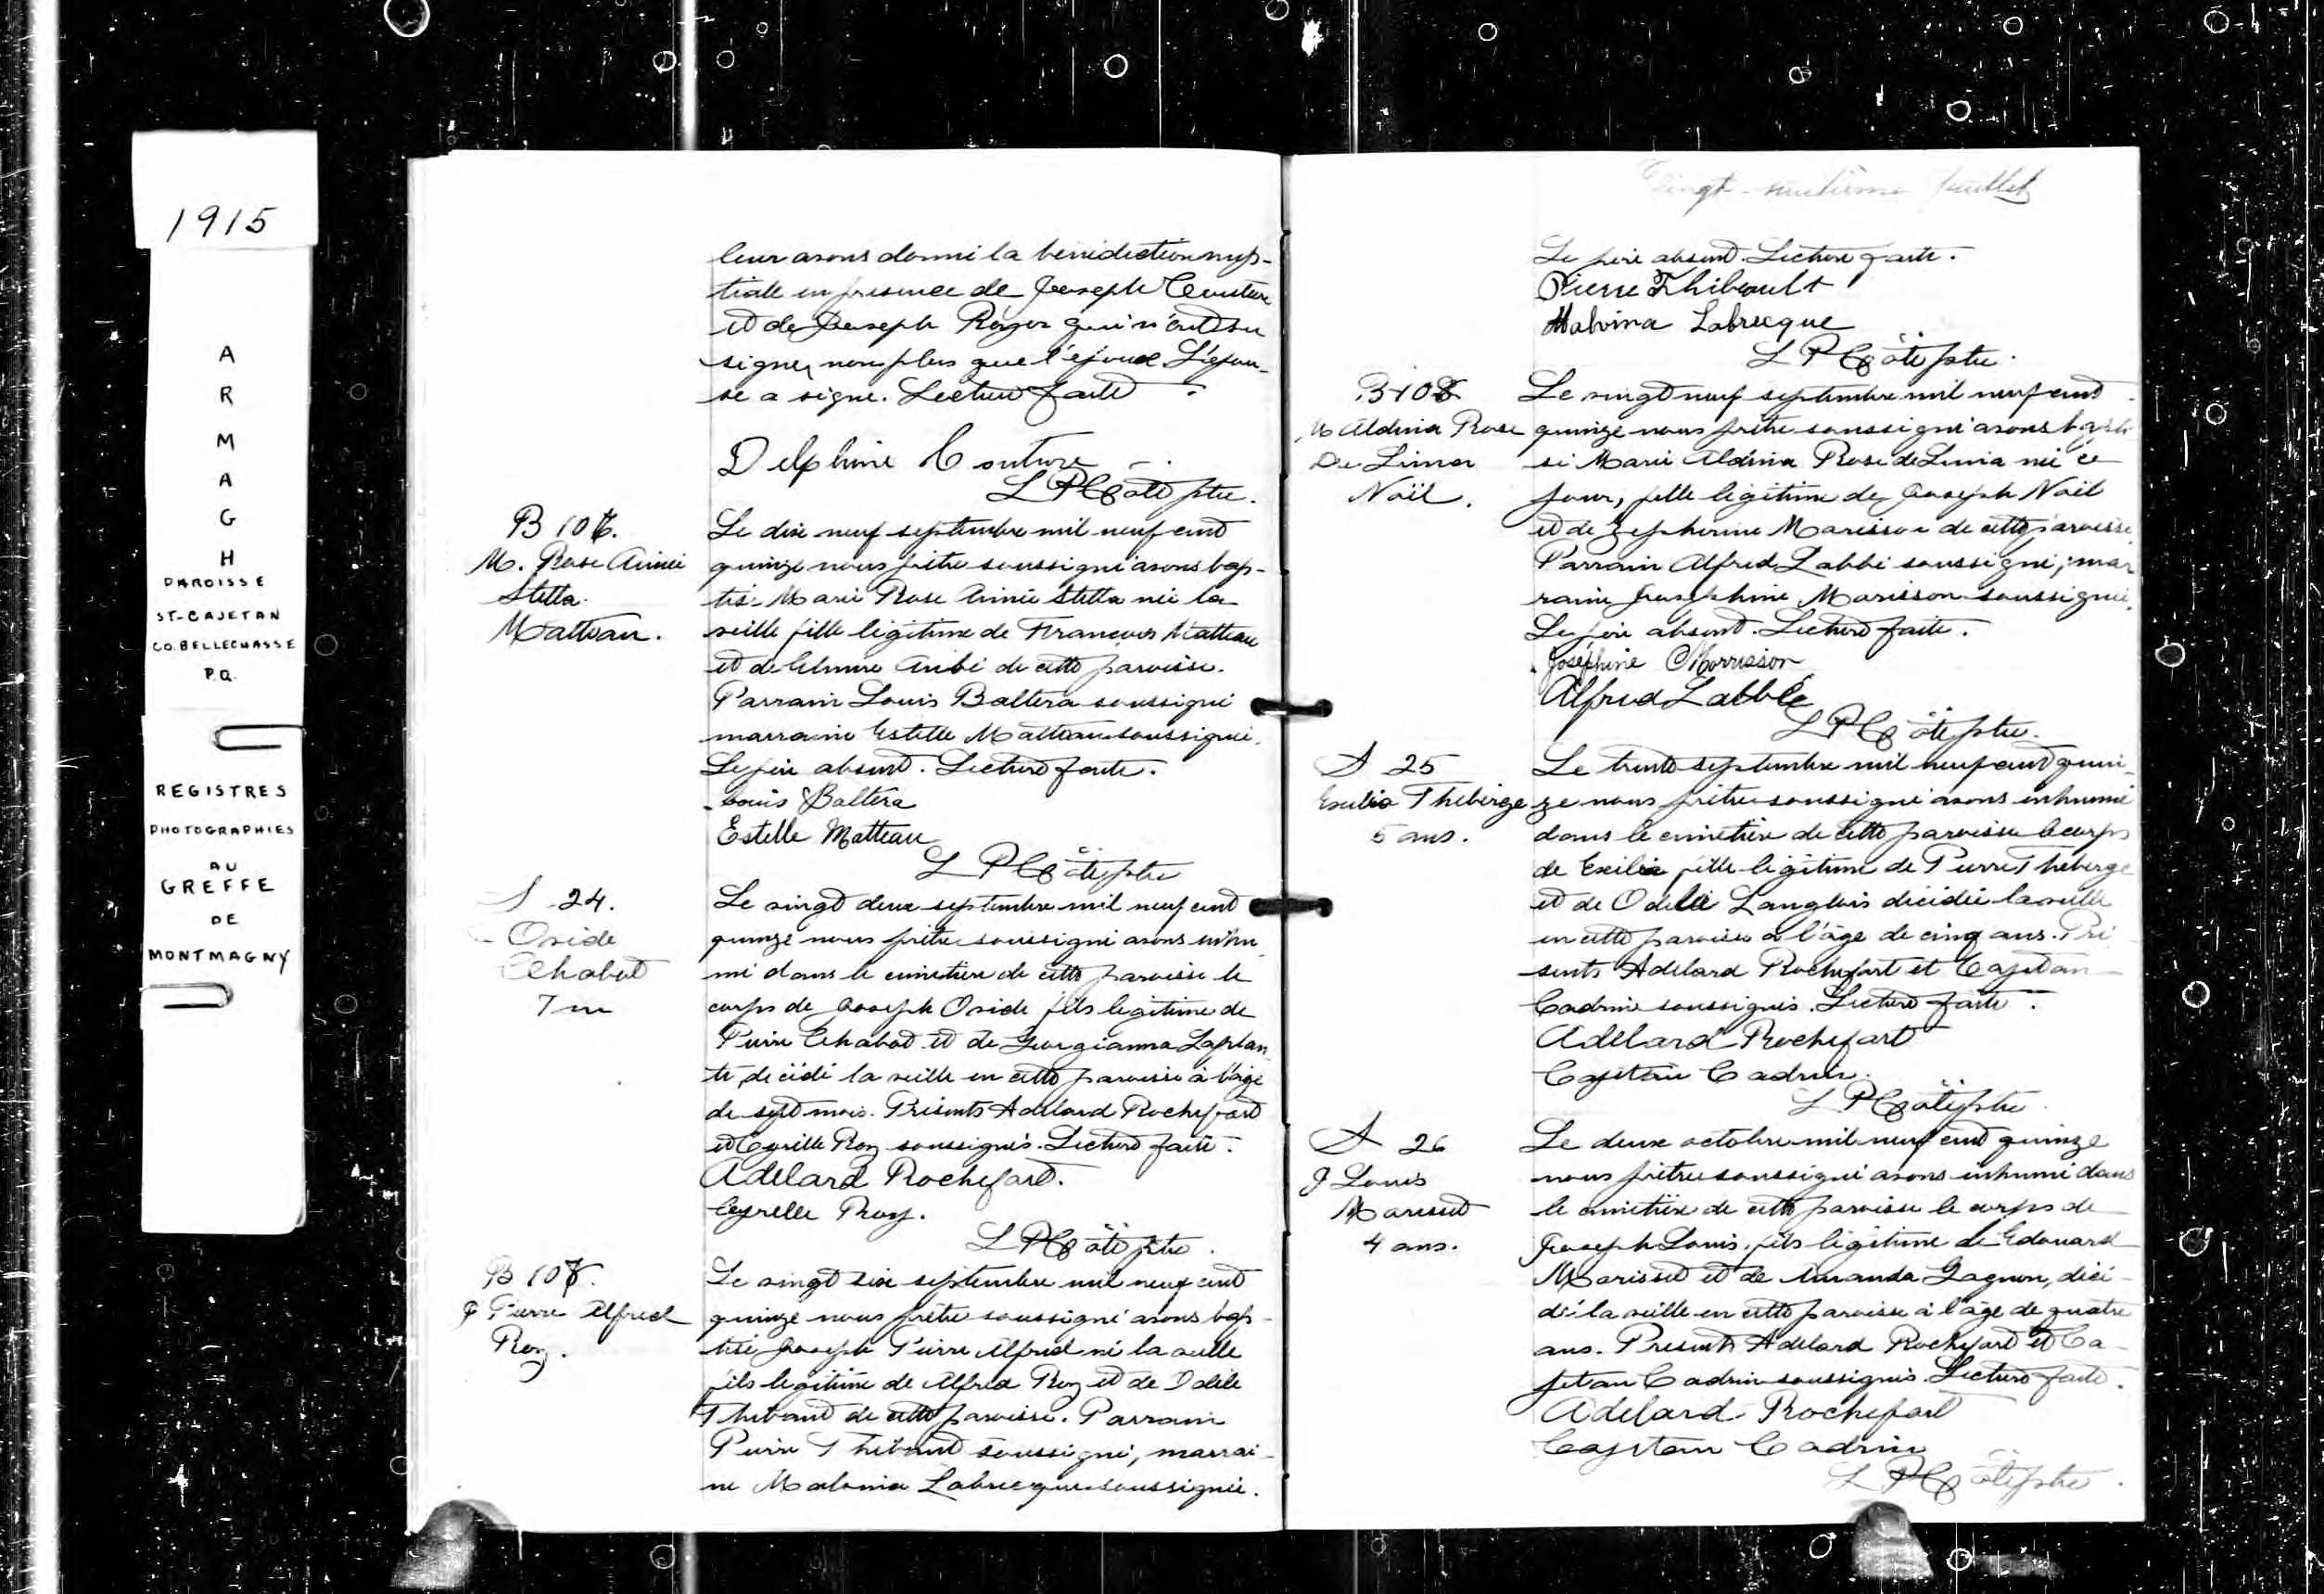 1915
A
R
M
A
G
H
PAROISSE
ST-CAJETAN
CO. BELLECHASSE
P.Q.
REGISTRES
PHOTOGRAPHIES
AU
GREFFE
DE
MONTMAGNY
leur avons donné la bénédiction nup-
tiale en présence de Joseph Couture
et de Joseph qui n'ont su
signer non plus que l'époux L'épou-
se a signé. Lecture faite.
Delphine Couture
L P Côté ptre.
B 106.
M. Rose Aimée
Stella
Matteau.
Le dix neuf septembre mil neuf cent
quinze nous prêtre soussigné avons bap-
tisé Marie Rose Aimée Stella née la
veille fille légitime de François Matteau
et de Aubé de cette paroisse.
Parrain Louis Baltera soussigné
marraine Estelle Matteau soussignée.
Le père absent. Lecture faite.
Louis Baltera
Estelle Matteau
L P Côté ptre
S 24.
Ovide
Chabot
7 m
Le vingt deux septembre mil neuf cent
quinze nous prêtre soussigné avons inhu
mé dans le cimetière de cette paroisse le
corps de Joseph Ovide fils légitime de
Pierre Chabot et de Georgianna Laplan
te, décédé la veille en cette paroisse à l'âge
de sept mois. Présents Adélard Rochefort
et Cyrille Roy soussignés. Lecture faite.
Adelard Rochefort.
Cyrille Roy.
L P Côté ptre.
B 107.
J Pierre Alfred
Roy.
Le vingt six septembre mil neuf cent
quinze nous prêtre soussigné avons bap-
tisé Joseph Pierre Alfred né la veille
fils légitime de Alfred Roy et de Odile
Thibaut de cette paroisse. Parrain
Pierre Thibaut soussigné, marrai-
ne Malvina Labrecque soussignée.
Vingt-huitième feuillet
Le père absent. Lecture faite.
Pierre Thibault
Malvina Labrecque
L P Côté ptre.
B 108
M Aldina Rose
De Lima
Noël.
Le vingt neuf septembre mil neuf cent
quinze nous prêtre soussigné avons bapti
sé Marie Aldina Rose de Lima née ce
jour, fille légitime de Joseph Noël
et de Zephirine Morisson de cette paroisse.
Parrain Alfred Labbé soussigné; mar
raine Josephine Morisson soussignée.
Le père absent. Lecture faite.
Joséphine Morrisson
Alfred Labbé
L P Côté ptre.
S 25
Exilia Théberge
5 ans.
Le trente septembre mil neuf cent quin-
ze nous prêtre soussigné avons inhumé
dans le cimetière de cette paroisse le corps
de Exilia fille légitime de Pierre Théberge
et de Odélie Langlois décédée la veille
en cette paroisse à l'âge de cinq ans. Pré
sents Adélard Rochefort et Cajetan
Cadrin soussignés. Lecture faite.
Adélard Rochefort
Cajetan Cadrin.
L P Côté ptre.
S 26
J Louis
Morisset
4 ans.
Le deux octobre mil neuf cent quinze
nous prêtre soussigné avons inhumé dans
le cimetière de cette paroisse le corps de
Joseph Louis, fils légitime de Edouard
Morisset et de Amanda Gagnon, décé-
dé la veille en cette paroisse à l'âge de quatre
ans. Présents Adélard Rochefort et Ca-
jetan Cadrin soussignés. Lecture faite.
Adélard Rochefort
Cajetan Cadrin
L P Côté ptre.